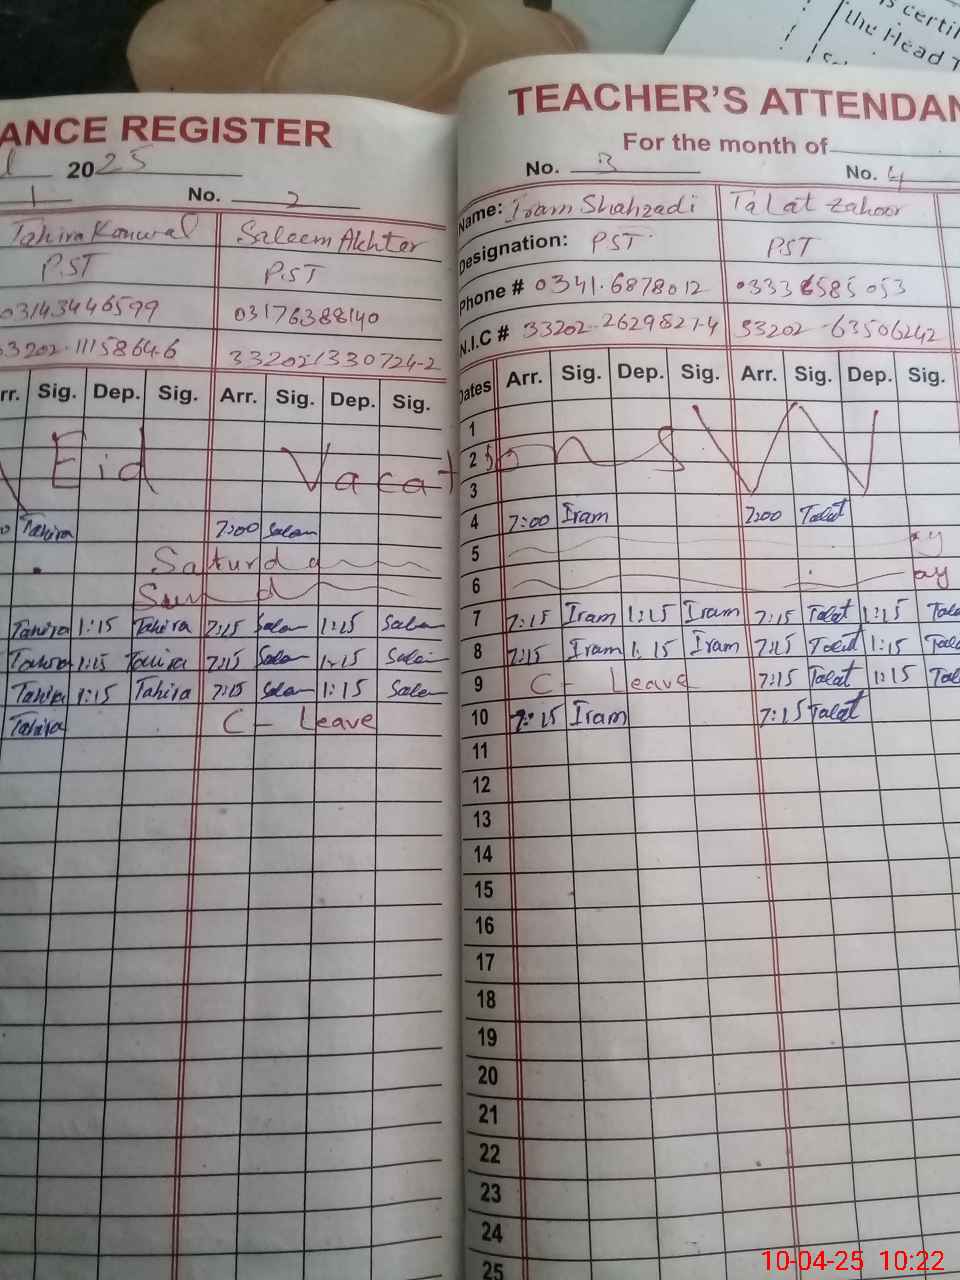 ANCE REGISTER
2025
1 No. 2
Tahira Kanwal Saleem Akhter
PST PST
03143446599 03176388140
33202-1115864-6 33202-1330724-2
rr. Sig. Dep. Sig. Arr. Sig. Dep. Sig.
Eid Vacat
Tahira 7:00 Salem
Saturda
Sund
Tahira 1:15 Tahira 7:15 Salem 1:15 Salem
Tahira 1:15 Tahira 7:15 Salem 1:15 Salem
Tahira 1:15 Tahira 7:15 Salem 1:15 Salem
Tahira C - Leave
is certif
the Head T
TEACHER'S ATTENDAN
For the month of
No. 3 No. 4
Name: Iram Shahzadi Talat Zahoor
Designation: PST PST
Phone # 0341-6878012 0333 6585 053
N.I.C # 33202-2629827-4 33202-63506242
Dates Arr. Sig. Dep. Sig. Arr. Sig. Dep. Sig.
1
2 ions
3
4 7:00 Iram 7:00 Talat
5 ay
6 ay
7 7:15 Iram 1:15 Iram 7:15 Talat 1:15 Tala
8 7:15 Iram 1:15 Iram 7:15 Talat 1:15 Tala
9 C - Leave 7:15 Talat 1:15 Tala
10 7:15 Iram 7:15 Talat
11
12
13
14
15
16
17
18
19
20
21
22
23
24
25
10-04-25 10:22